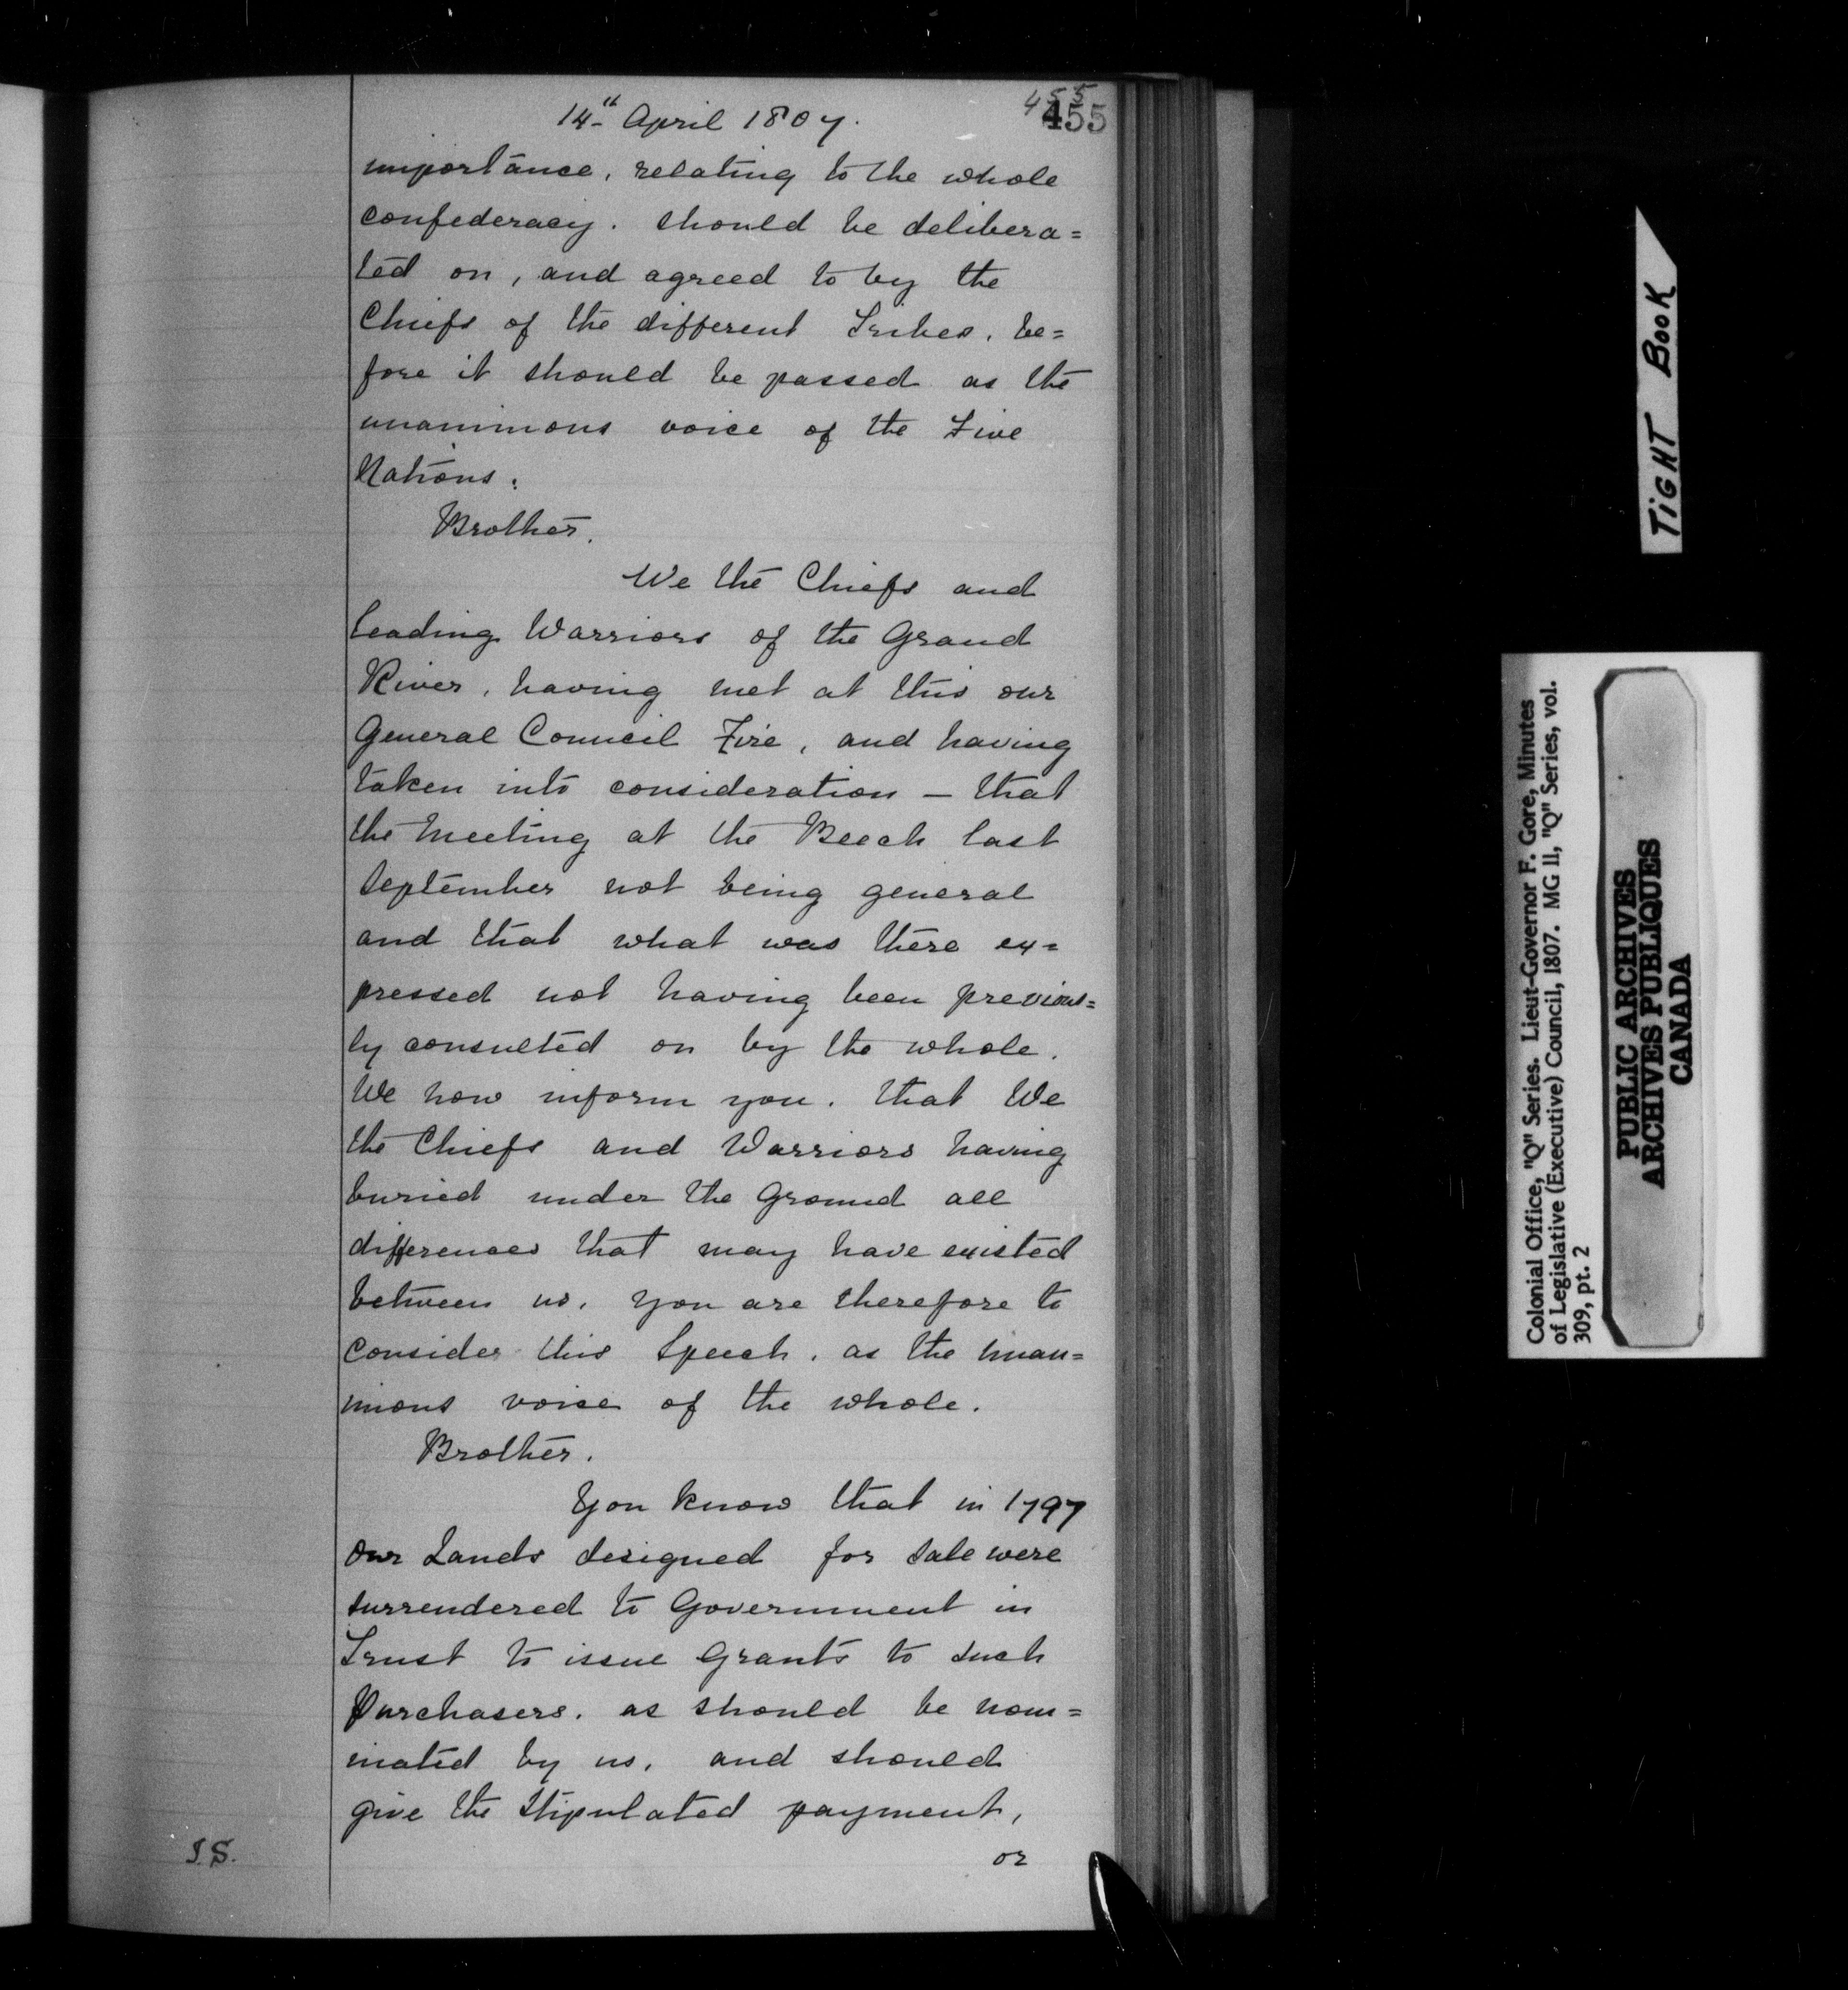 455
14th April 1807.
455
importance, relating to the whole
confederacy. should be delibera=
ted on, and agreed to by the
Chiefs of the different Tribes, be=
fore it should be passed as the
unanimous voice of the Five
Nations.
Brother,
We the Chiefs and
leading Warriors of the Grand
River, having met at this our
General Council Fire, and having
taken into consideration — that
the Meeting at the Beech last
September not being general
and that what was there ex=
pressed not having been previous=
ly consulted on by the whole.
We now inform you. that We
the Chiefs and Warriors having
buried under the ground all
differences that may have existed
between us, you are therefore to
consider this Speech, as the unan=
imous voice of the whole.
Brother.
You know that in 1797
our Lands designed for sale were
surrendered to Government in
Trust to issue Grants to such
Purchasers, as should be nom=
inated by us, and should
give the stipulated payment,
or
J.S.
TIGHT BOOK
Colonial Office, "Q" Series. Lieut-Governor F. Gore, Minutes
of Legislative (Executive) Council, 1807. MG 11, "Q" Series, vol.
309, pt. 2
PUBLIC ARCHIVES
ARCHIVES PUBLIQUES
CANADA